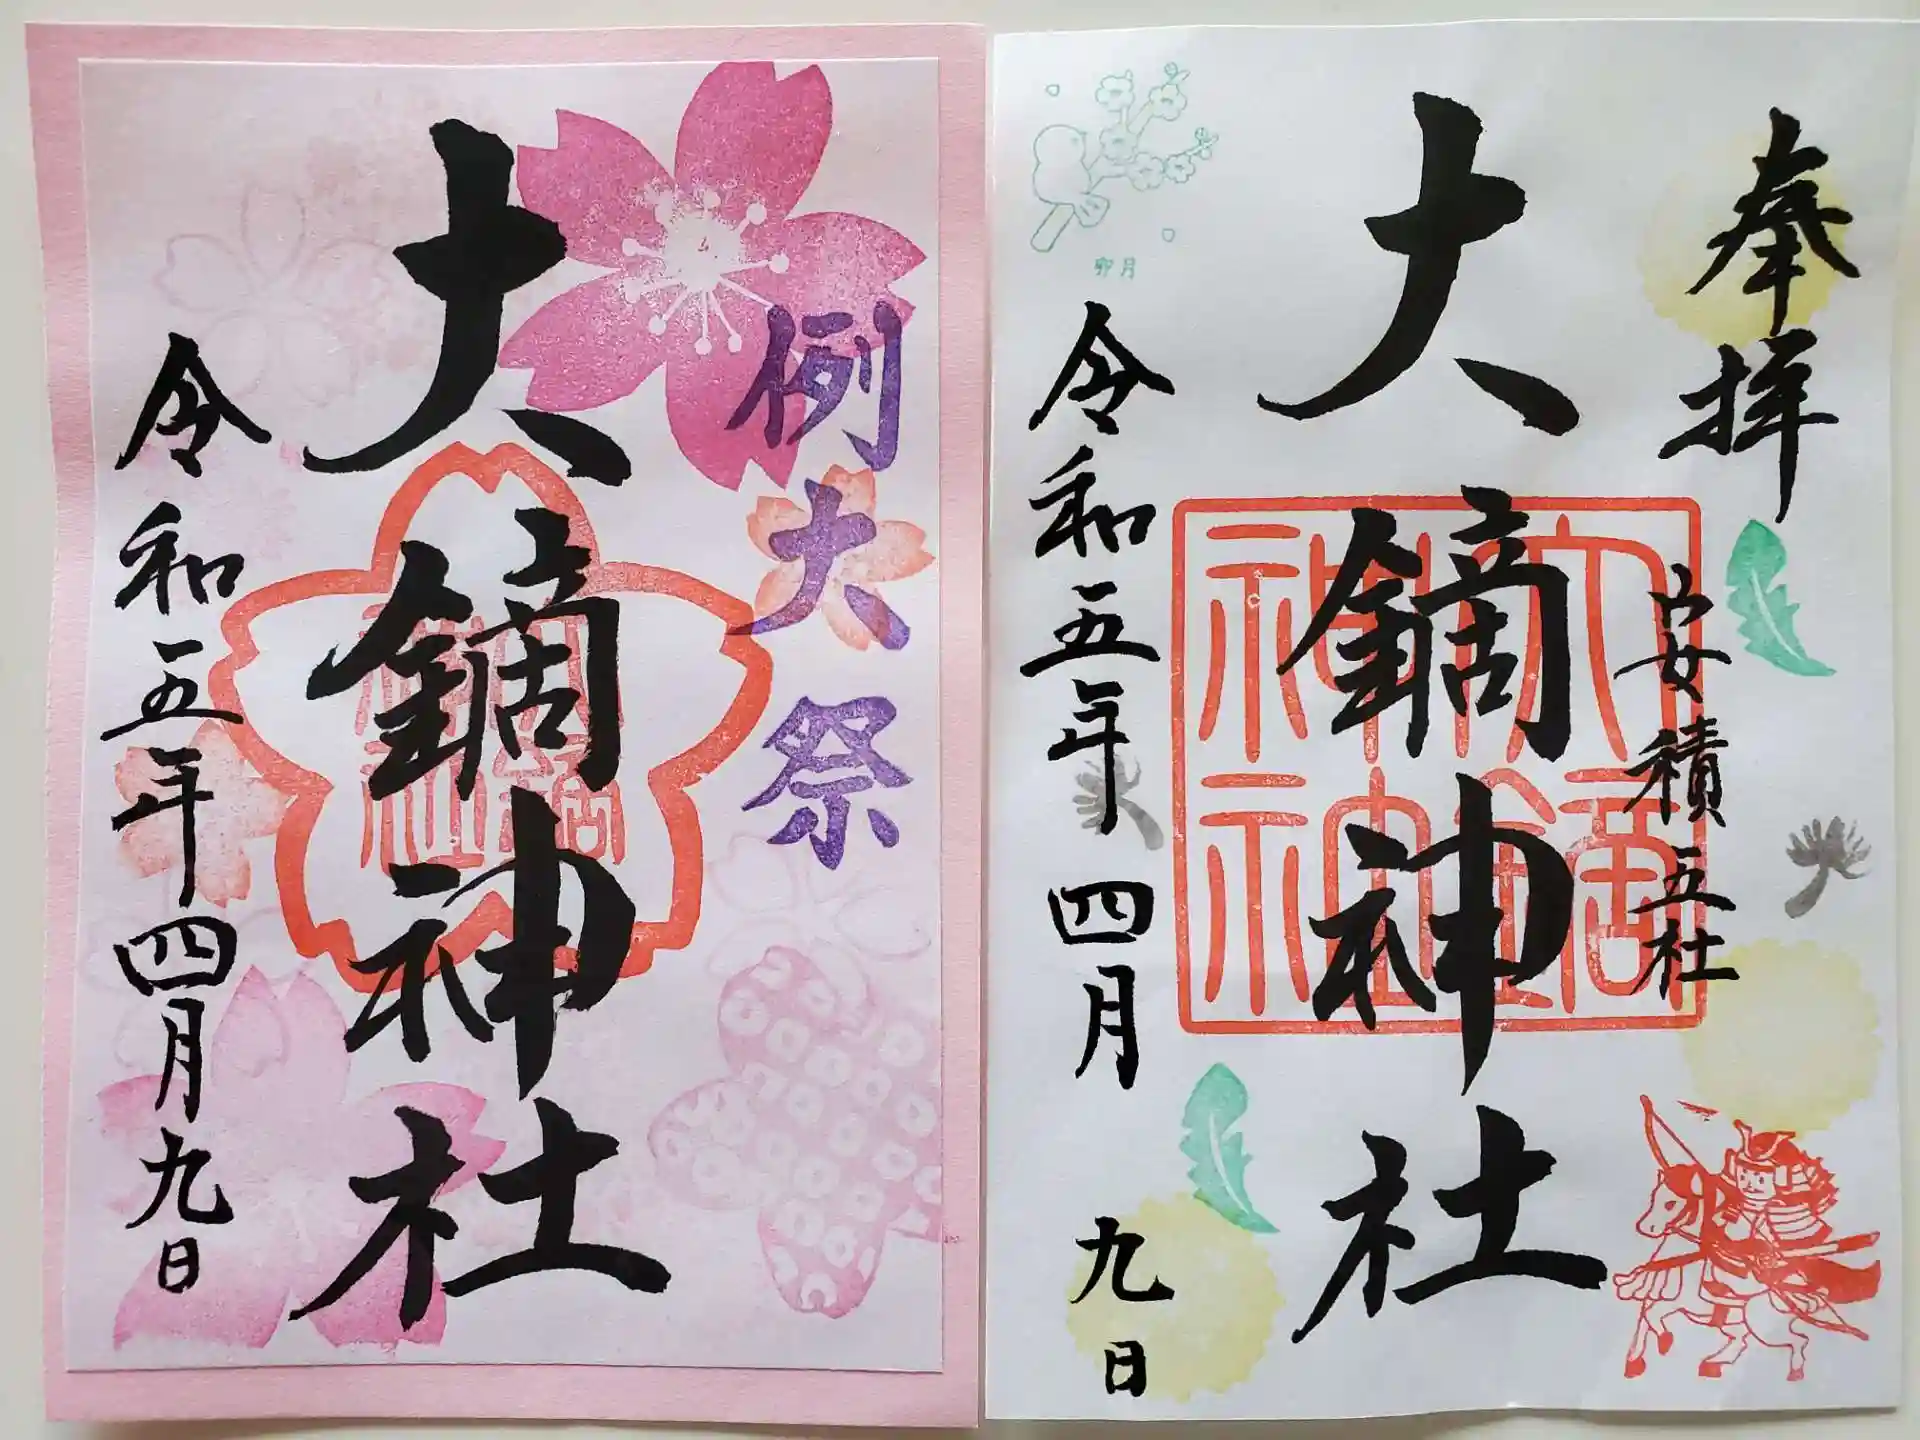 例大祭
大鏑神社
令和五年四月九日
奉拝
安積五社
大鏑神社
令和五年四月九日
卯月